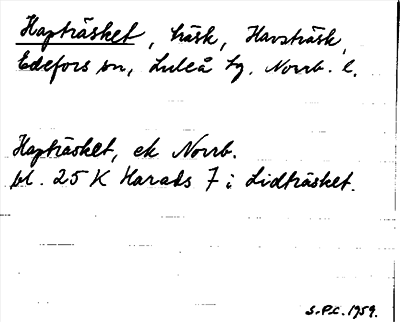 Hapträsket, träsk, Havsträsk,
Edefors sn, Luleå tg. Norrb. l.
Hapträsket, ek Norrb.
bl. 25 K Harads 7 i Lidträsket.
S.P.C. 1959.